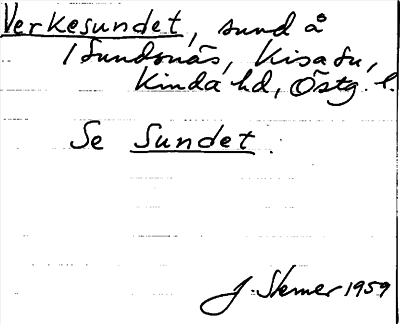 Verkesundet, sund å
/ Sundsnäs, Kisa sn,
Kinda hd, Östg. l.
Se Sundet.
J. Stemer 1959